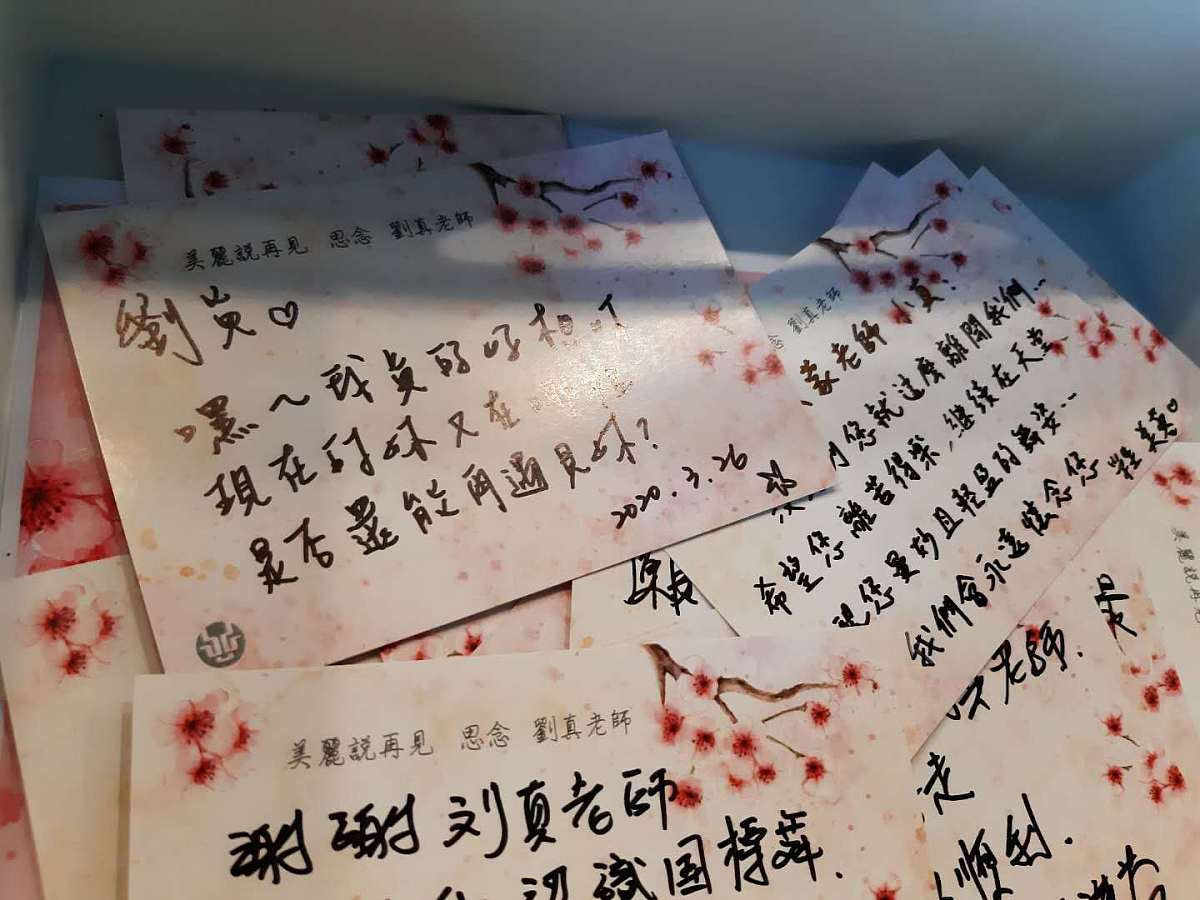 美麗說再見 思念 劉真老師
劉真♡
嘿～我真的好想
現在的妳又在
是否還能再遇見妳？
2020.3.26
念 劉真老師
老師 小真：
您就這麼離開我們…
希望您離苦得樂，繼續在天堂
您曼妙且輕盈的舞姿…
我們會永遠懷念您
美麗說再見 思念 劉真老師
謝謝刘真老師
認識国標舞.
老師.
走
順利.
美麗說再見